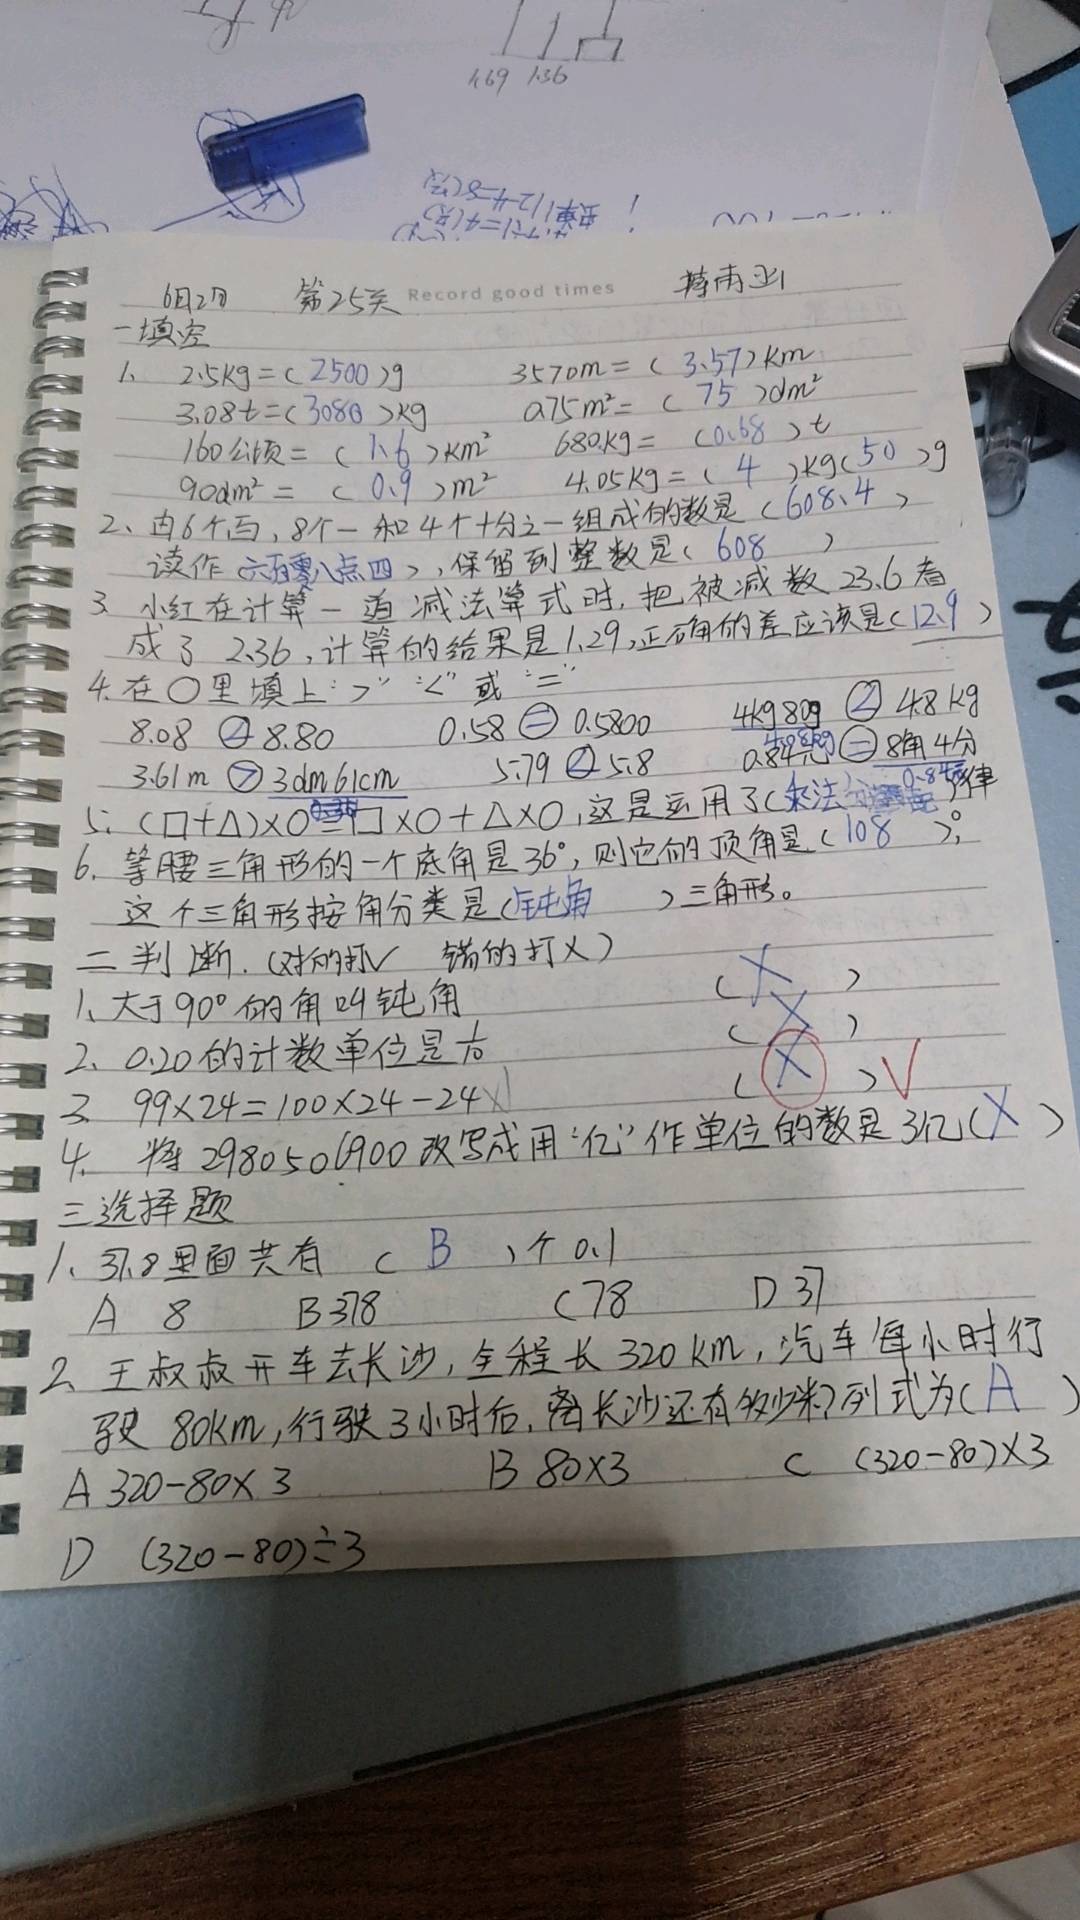 1.69 1.36
6月2日 第25关 Record good times
一填空
1、 2.5kg=(2500)g 3570m=(3.57)km
3.08t=(3080)kg 0.75m²=(75)dm²
160公顷=(1.6)km² 680kg=(0.68)t
90dm²=(0.9)m² 4.05kg=(4)kg(50)g
2、由6个百,8个一和4个十分之一组成的数是(608.4)
读作(六百零八点四),保留到整数是(608)
3、小红在计算一道减法算式时,把被减数23.6看
成了2.36,计算的结果是1.29,正确的差应该是(12.9)
4.在○里填上“>”“<”或“=”
8.08 < 8.80 0.58 = 0.5800 4kg80g < 4.8kg
4.08kg
3.61m > 3dm61cm 5.79 < 5.8 0.84元 = 8角4分
0.84元
5、(□+△)×○=□×○+△×○,这是运用了(乘法分配)律
6、等腰三角形的一个底角是36°,则它的顶角是(108)°,
这个三角形按角分类是(钝角)三角形。
二判断.(对的打√ 错的打×)
1、大于90°的角叫钝角 (×)
2、0.20的计数单位是1/10 (×)
3 99×24=100×24-24×1 (×)√
4、将2980501900改写成用“亿”作单位的数是3亿(×)
三选择题
1、37.8里面共有(B)个0.1
A 8 B 378 C 78 D 37
2、王叔叔开车去长沙,全程长320km,汽车每小时行
驶80km,行驶3小时后,离长沙还有多少米?列式为(A)
A 320-80×3 B 80×3 C (320-80)×3
D (320-80)÷3